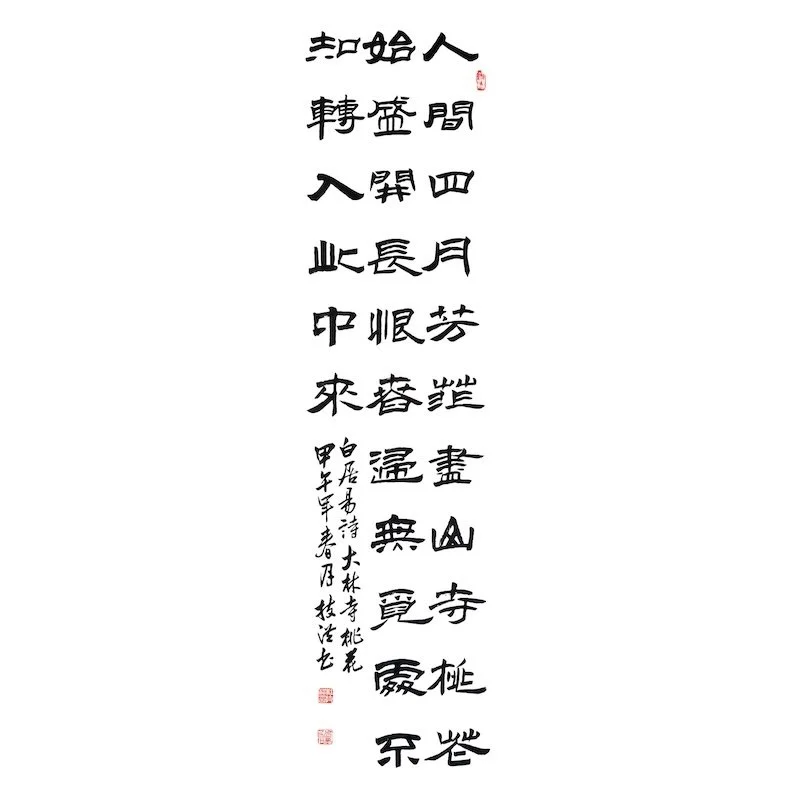 人間四月芳菲盡山寺桃花
始盛開長恨春歸無覓處不
知轉入此中來
白居易詩大林寺桃花
甲午年春月技法书